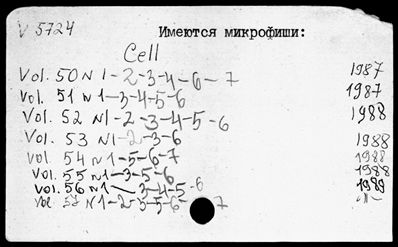 V 5724 Имеются микрофиши:
Cell
Vol. 50 N 1-2-3-4-6-7 1987
Vol. 51 N 1-3-4-5-6 1987
Vol. 52 N 1-2-3-4-5-6 1988
Vol. 53 N 1-2-3-6 1988
Vol. 54 N 1-5-6-7 1988
Vol. 55 N 1-3-5-6 1988
Vol. 56 N 1-3-4-5-6 1989
Vol. 57 N 1-2-3-5-6-7 -"-